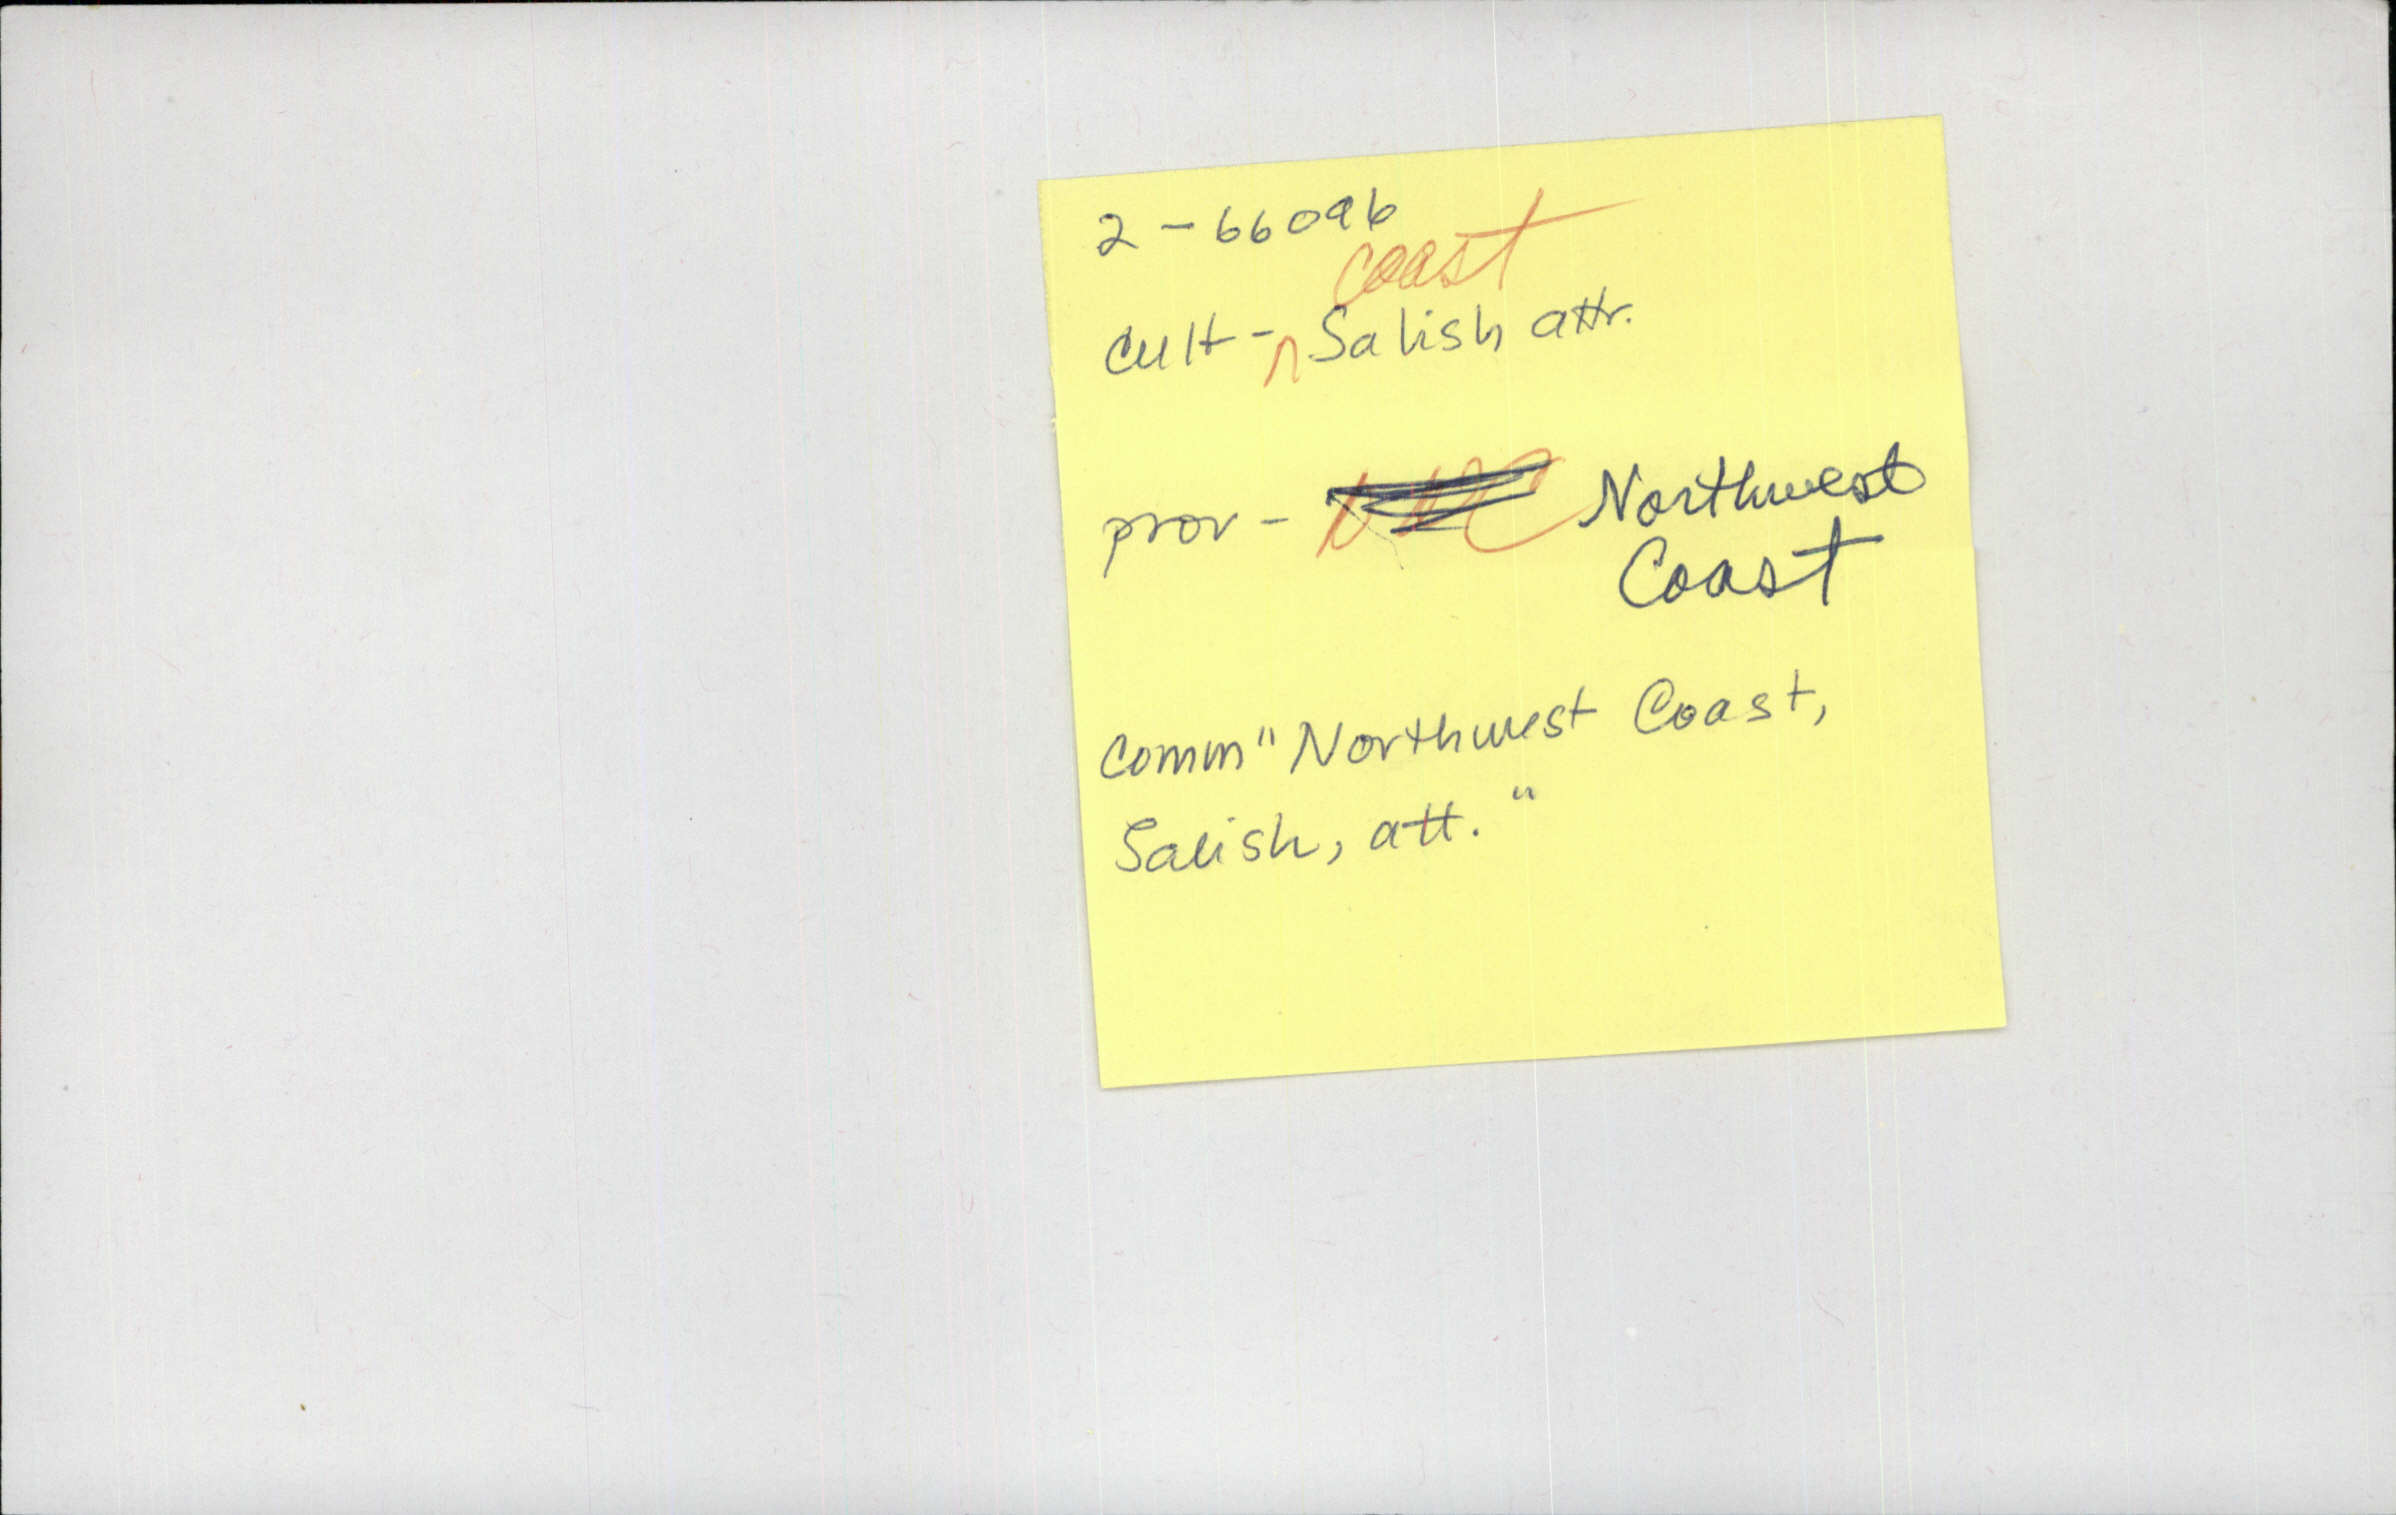 2-66096
coast
cult - ^ Salish attr.
prov - NWC Northwest
Coast
Comm "Northwest Coast,
Salish, att."